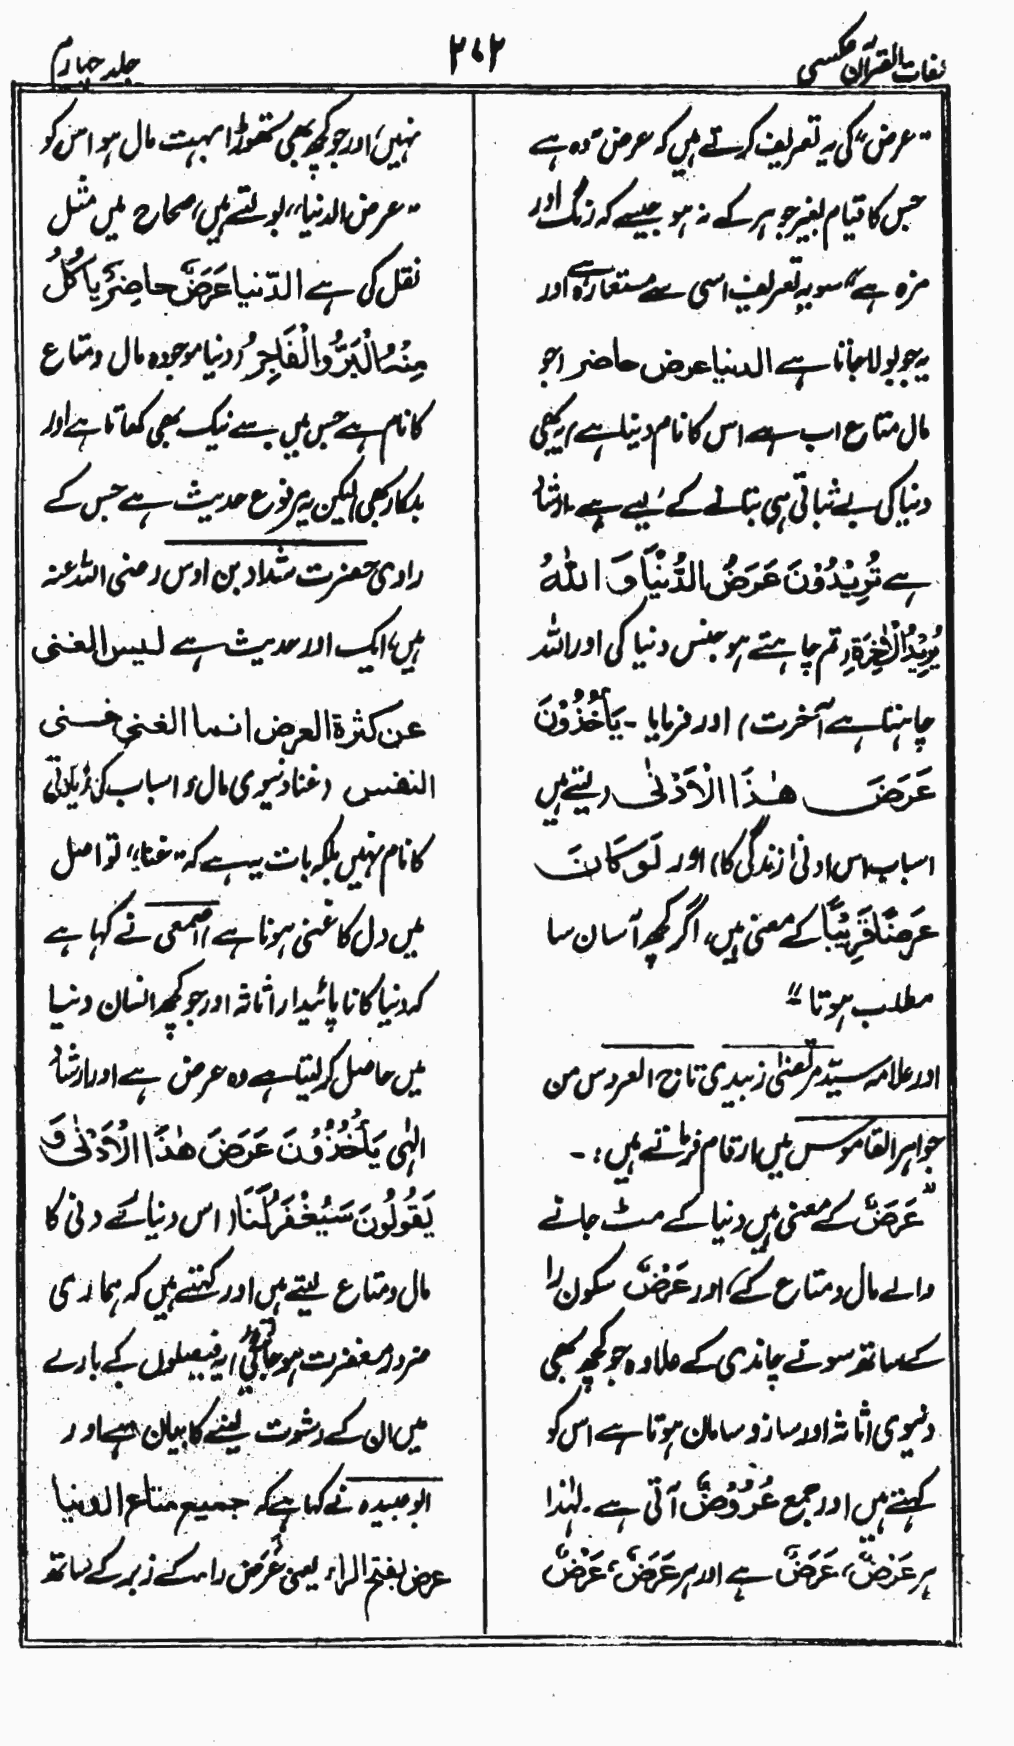 لغات القرآن عکسی
۲۰۲
جلد چہارم
"عرض" کی یہ تعریف کرتے ہیں کہ عرض وہ ہے
جس کا قیام بغیر جوہر کے نہ ہو جیسے کہ رنگ اور
مزہ ہے" سو یہ تعریف اسی سے مستعار ہے اور
یہ جو بولا جاتا ہے الدنیا عرض حاضر (جو
مال متاع اب ہے اس کا نام دنیا ہے) یہ بھی
دنیا کی بے ثباتی ہی بتانے کے لیے ہے۔ ارشاد
ہے تُرِيْدُوْنَ عَرَضَ الدُّنْيَا وَاللّٰهُ
يُرِيْدُ الْاٰخِرَةَ (تم چاہتے ہو جنس دنیا کی اور اللہ
چاہتا ہے آخرت) اور فرمایا۔ يَأْخُذُوْنَ
عَرَضَ هٰذَا الْاَدْنٰى (لیتے ہیں
اسباب اس ادنیٰ زندگی کا) اور لَوْ كَانَ
عَرَضًا قَرِيْبًا کے معنی ہیں، اگر کچھ آسان سا
مطلب ہوتا"
اور علامہ سیّد مرتضیٰ زبیدی تاج العروس من
جواہر القاموس میں ارقام فرماتے ہیں :۔
"عَرَضٌ کے معنی ہیں دنیا کے مٹ جانے
والے مال و متاع کے، اور عَرْضٌ سکون را
کے ساتھ سونے چاندی کے علاوہ جو کچھ بھی
دنیوی اثاثہ اور ساز و سامان ہوتا ہے اس کو
کہتے ہیں اور جمع عُرُوْضٌ آتی ہے۔ لہٰذا
ہر عَرْضٌ، عَرَضٌ ہے اور ہر عَرَضٌ، عَرْضٌ
نہیں، اور جو کچھ بھی تھوڑا بہت مال ہو اس کو
"عرض الدنیا" بولتے ہیں، صحاح میں مثل
نقل کی ہے الدّنیا عَرَضٌ حاضِرٌ یاکُلُ
مِنْهُ الْبَرُّ والْفَاجِرُ (دنیا موجودہ مال و متاع
کا نام ہے جس میں سے نیک بھی کھاتا ہے اور
بدکار بھی) لیکن یہ مرفوع حدیث ہے جس کے
راوی حضرت شدّاد بن اوس رضی اللہ عنہ
ہیں، ایک اور حدیث ہے لیس الغنی
عن کثرة العرض انما الغنی غنی
النفس (غنا دنیوی مال و اسباب کی زیادتی
کا نام نہیں بلکہ بات یہ ہے کہ "غنا" تو اصل
میں دل کا غنی ہونا ہے) اصمعی نے کہا ہے
کہ دنیا کا ناپائیدار اثاثہ اور جو کچھ انسان دنیا
میں حاصل کر لیتا ہے وہ عرض ہے اور ارشاد
الٰہی يَأْخُذُوْنَ عَرَضَ هٰذَا الْاَدْنٰى وَ
يَقُوْلُوْنَ سَيُغْفَرُ لَنَا (اس دنیائے دنی کا
مال و متاع لیتے ہیں اور کہتے ہیں کہ ہماری
ضرور مغفرت ہو جائیگی) یہ فیصلوں کے بارے
میں ان کے رشوت لینے کا بیان ہے اور
ابو عبیدہ نے کہا ہے کہ جمیع متاع الدنیا
عرض بفتح الراء یعنی عَرَض راء کے زبر کے ساتھ